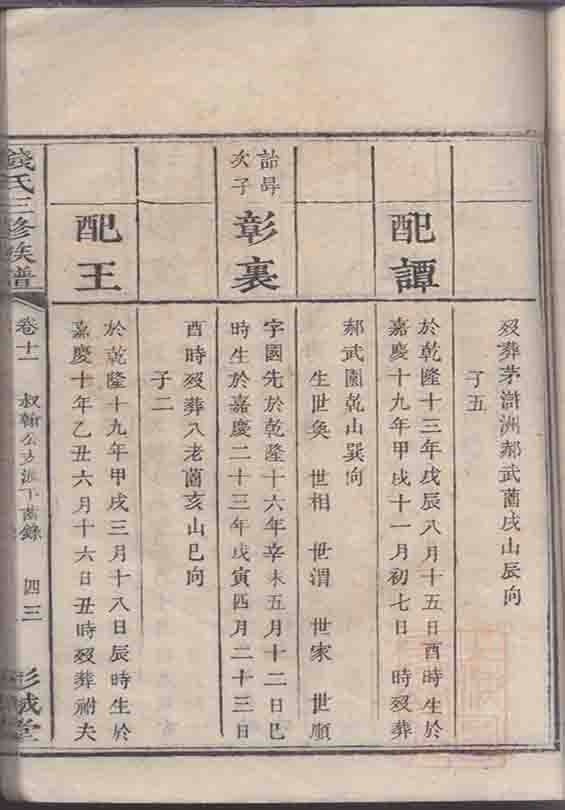 歿葬茅滸洲郝武薗戌山辰向
子五
配譚
於乾隆十三年戊辰八月十五日酉時生於
嘉慶十九年甲戌十一月初七日 時歿葬
郝武園乾山巽向
生世奐 世相 世渭 世家 世順
詒昇
次子
彰裏
字國先於乾隆十六年辛未五月十二日巳
時生於嘉慶二十三年戊寅四月二十三日
酉時歿葬八老薗亥山巳向
子二
配王
於乾隆十九年甲戌三月十八日辰時生於
嘉慶十年乙丑六月十六日丑時歿葬祔夫
錢氏三修族譜
卷十一
叔翰公支派下齒錄
四三
彭城堂